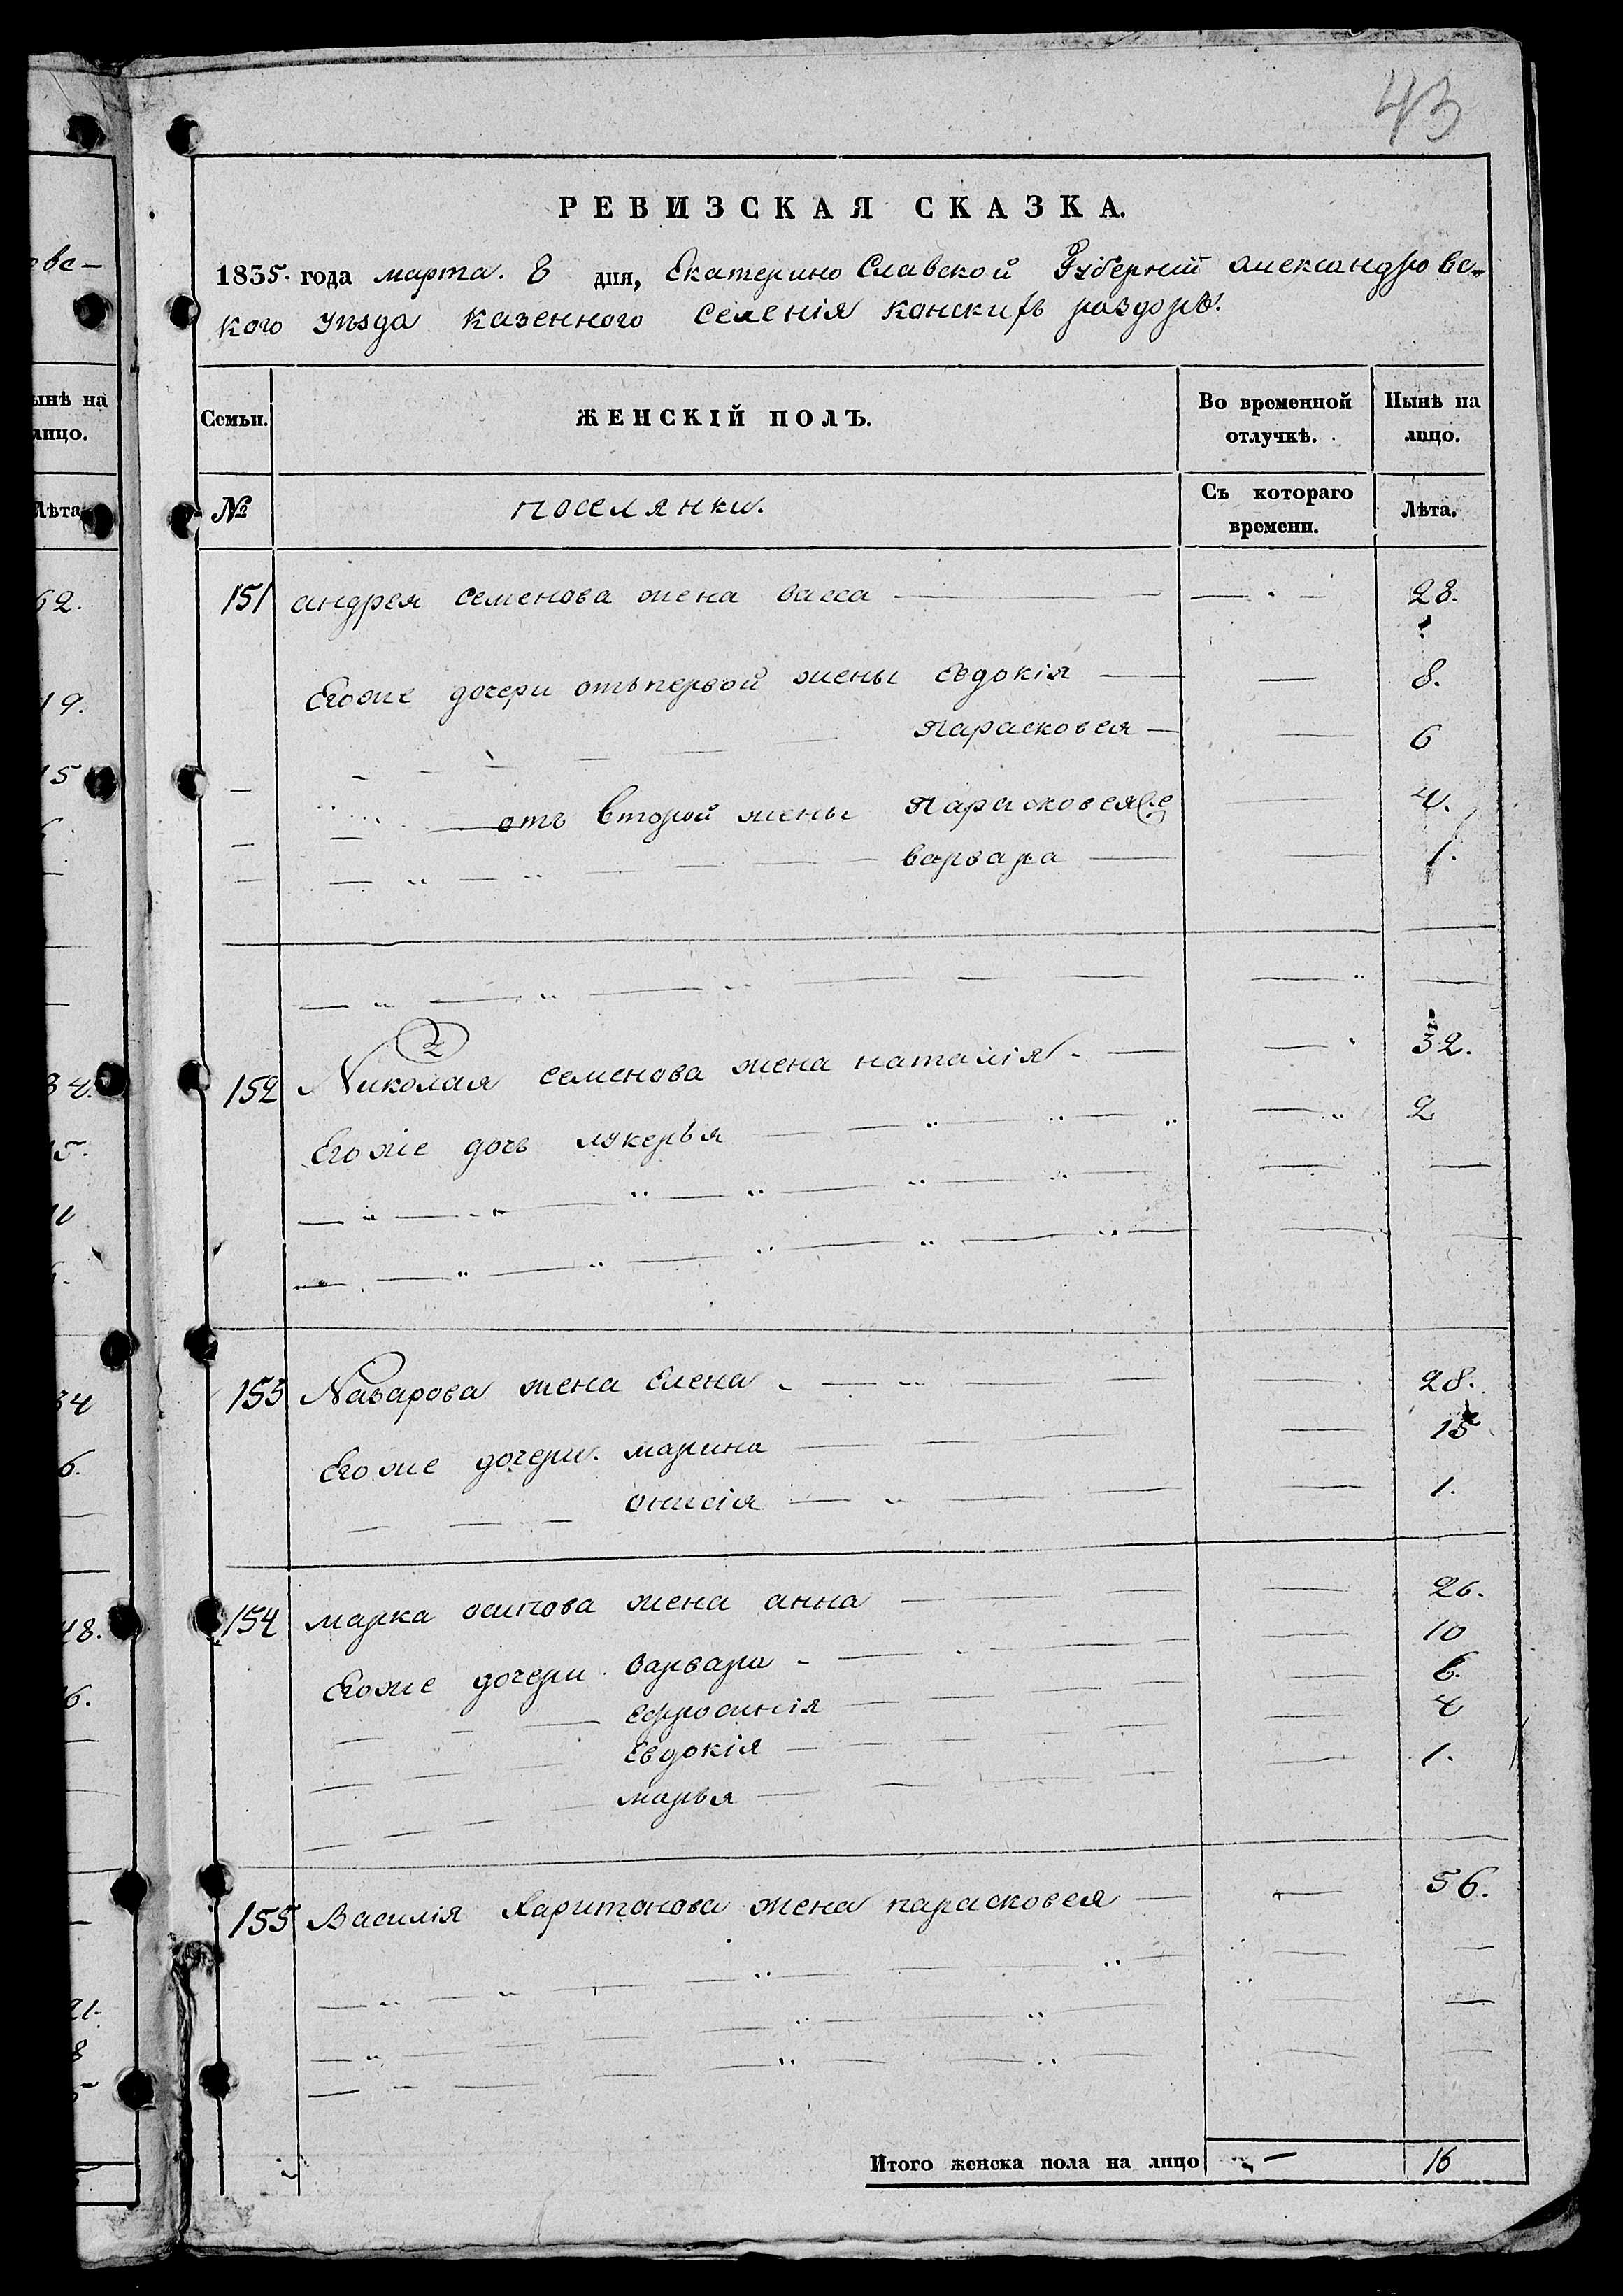 43
РЕВИЗСКАЯ СКАЗКА.
1835. года марта. 8 дня, Екатерино Славской Губерніи Александровс-
кого уѣзда казенного селенія конскихъ раздоръ.
Семьи. ЖЕНСКІЙ ПОЛЪ. Во временной отлучкѣ. Нынѣ на лицо.
№ поселянки. Съ котораго времени. Лѣта.
151 андрея семенова жена васса 28.
Егоже дочери отъпервой жены евдокія 8.
Парасковея 6
отъ второй жены Парасковея 4.
варвара 1.
2
152 Николая семенова жена наталія 32.
Егоже дочь лукерья 2
153 Назарова жена елена 28.
Егоже дочери. марина 15
онисія 1.
154 марка осипова жена анна 26.
Егоже дочери варвара 10
ефросинія 6.
Евдокія 4
марья 1.
155 Василія Харитонова жена парасковея 56.
Итого женска пола на лицо 16
ынѣ на
лицо.
Лѣта
62.
19.
15
34
6.
48.